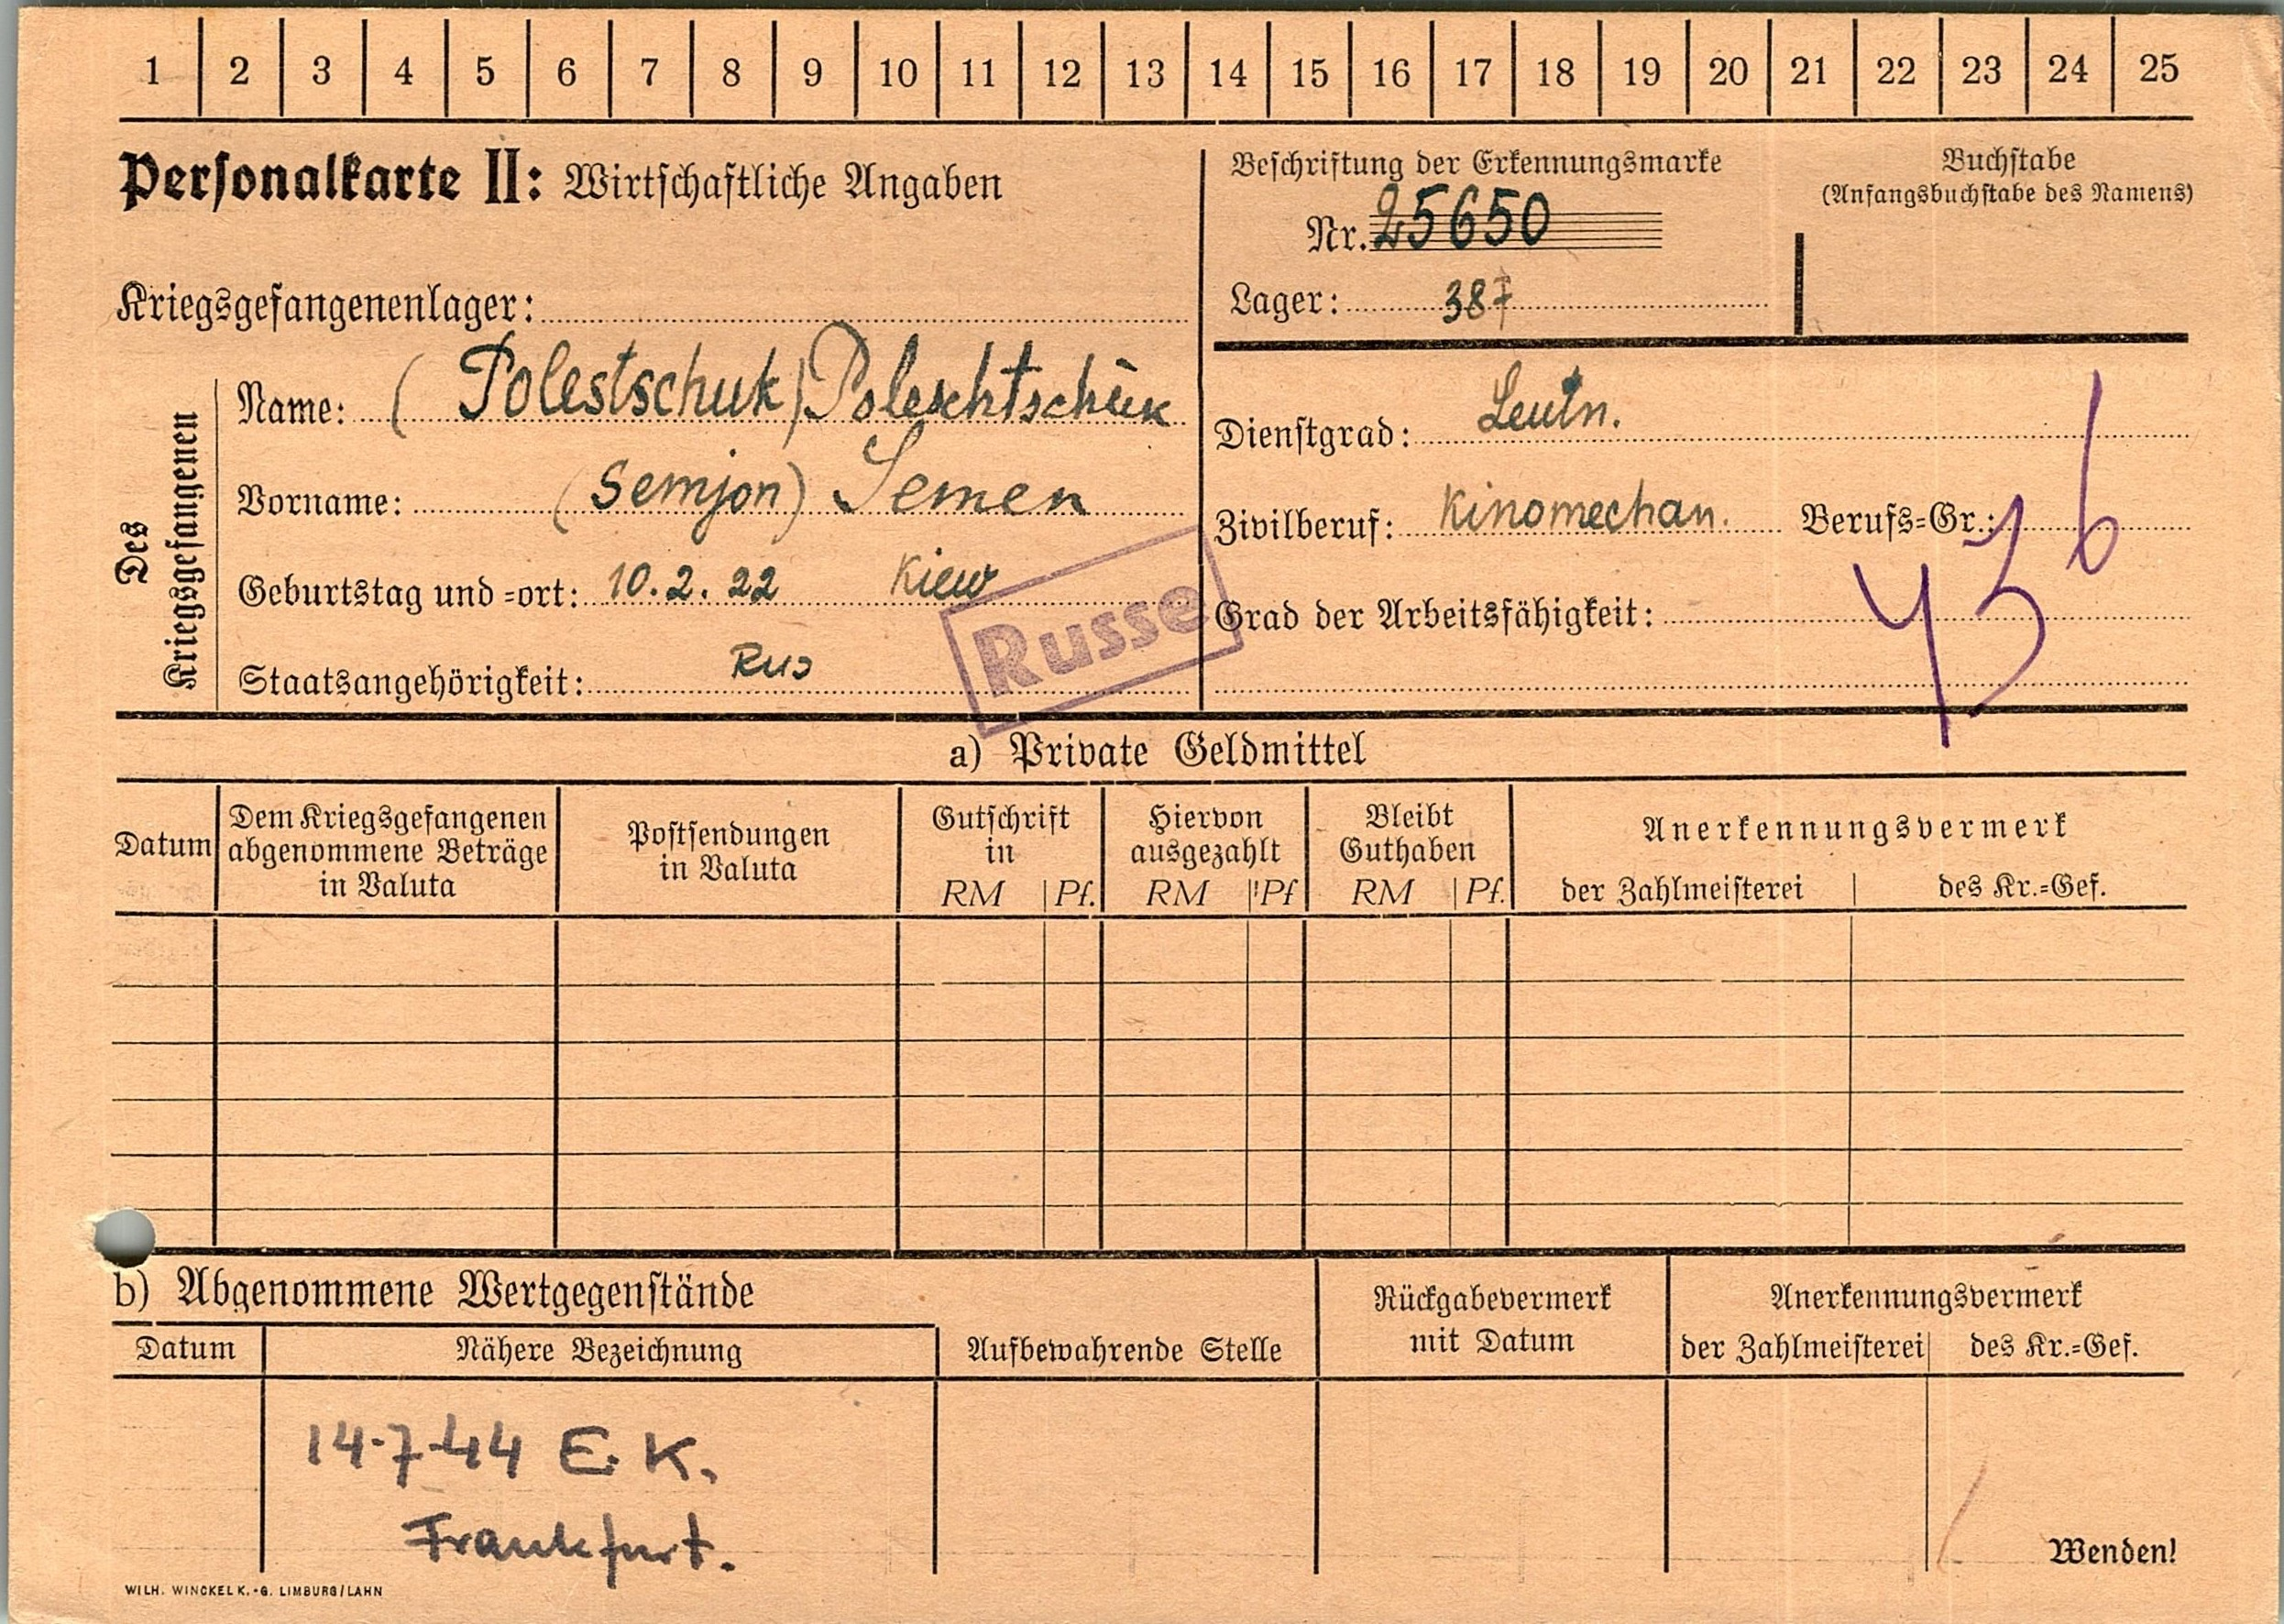 1 2 3 4 5 6 7 8 9 10 11 12 13 14 15 16 17 18 19 20 21 22 23 24 25
Personalkarte II: Wirtschaftliche Angaben
Beschriftung der Erkennungsmarke
Nr. 25650
Lager: 387
Buchstabe
(Anfangsbuchstabe des Namens)
Kriegsgefangenenlager:
Des
Kriegsgefangenen
Name: (Polestschuk) Poleschtschuk
Vorname: (Semjon) Semen
Geburtstag und =ort: 10.2.22 Kiew
Staatsangehörigkeit: Rus
Russe
Dienstgrad: Leutn.
Zivilberuf: Kinomechan. Berufs=Gr.:
Grad der Arbeitsfähigkeit:
436
a) Private Geldmittel
Datum
Dem Kriegsgefangenen
abgenommene Beträge
in Valuta
Postsendungen
in Valuta
Gutschrift
in
RM | Pf.
Hiervon
ausgezahlt
RM | Pf
Bleibt
Guthaben
RM | Pf.
Anerkennungsvermerk
der Zahlmeisterei | des Kr.=Gef.
b) Abgenommene Wertgegenstände
Datum
Nähere Bezeichnung
Aufbewahrende Stelle
Rückgabevermerk
mit Datum
Anerkennungsvermerk
der Zahlmeisterei | des Kr.=Gef.
14-7-44 E. K.
Frankfurt.
Wenden!
WILH. WINCKEL K.-G. LIMBURG/LAHN